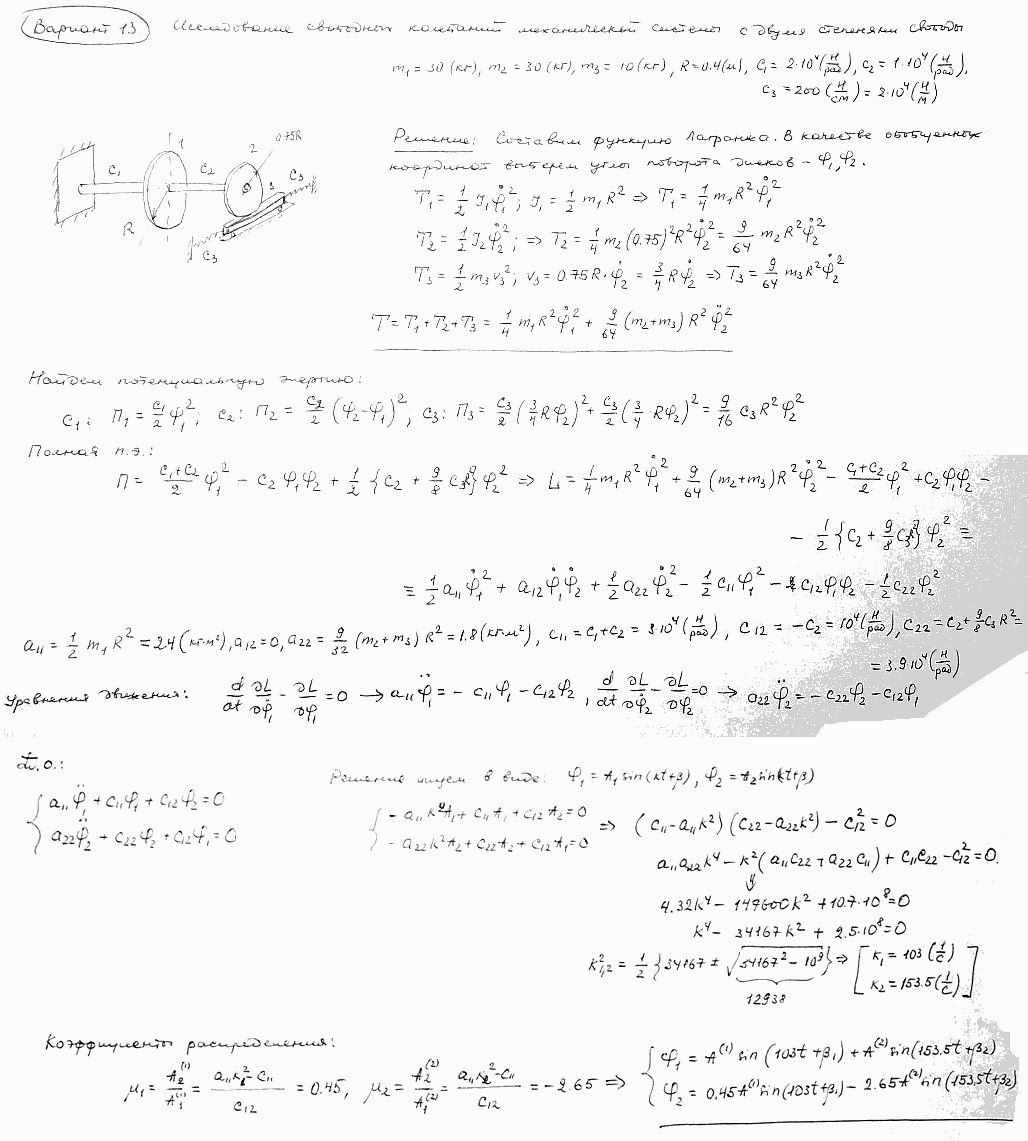 Вариант 13 Исследование свободных колебаний механической системы с двумя степенями свободы
m₁ = 30 (кг), m₂ = 30 (кг), m₃ = 10 (кг), R = 0.4 (м), c₁ = 2·10⁴ (Н/рад), c₂ = 1·10⁴ (Н/рад),
c₃ = 200 (Н/см) = 2·10⁴ (Н/м)
c₁ 1 c₂ 2 0.75R 3 c₃ R c₃
Решение: Составим функцию Лагранжа. В качестве обобщенных
координат выберем углы поворота дисков – φ₁, φ₂.
T₁ = 1/2 J₁φ̇₁²; J₁ = 1/2 m₁R² ⇒ T₁ = 1/4 m₁R²φ̇₁²
T₂ = 1/2 J₂φ̇₂²; ⇒ T₂ = 1/4 m₂(0.75)²R²φ̇₂² = 9/64 m₂R²φ̇₂²
T₃ = 1/2 m₃v₃²; v₃ = 0.75R·φ̇₂ = 3/4 Rφ̇₂ ⇒ T₃ = 9/64 m₃R²φ̇₂²
T = T₁ + T₂ + T₃ = 1/4 m₁R²φ̇₁² + 9/64 (m₂+m₃)R²φ̇₂²
Найдем потенциальную энергию:
c₁: П₁ = c₁/2 φ₁²; c₂: П₂ = c₂/2 (φ₂-φ₁)²; c₃: П₃ = c₃/2 (3/4 Rφ₂)² + c₃/2 (3/4 Rφ₂)² = 9/16 c₃R²φ₂²
Полная п.э.:
П = (c₁+c₂)/2 φ₁² - c₂φ₁φ₂ + 1/2 {c₂ + 9/8 c₃R²}φ₂² ⇒ L = 1/4 m₁R²φ̇₁² + 9/64 (m₂+m₃)R²φ̇₂² - (c₁+c₂)/2 φ₁² + c₂φ₁φ₂ -
- 1/2 {c₂ + 9/8 c₃R²}φ₂² =
= 1/2 a₁₁φ̇₁² + a₁₂φ̇₁φ̇₂ + 1/2 a₂₂φ̇₂² - 1/2 c₁₁φ₁² - c₁₂φ₁φ₂ - 1/2 c₂₂φ₂²
a₁₁ = 1/2 m₁R² = 2.4 (кг·м²), a₁₂ = 0, a₂₂ = 9/32 (m₂+m₃)R² = 1.8 (кг·м²), c₁₁ = c₁+c₂ = 3·10⁴ (Н/рад), c₁₂ = -c₂ = 10⁴ (Н/рад), c₂₂ = c₂ + 9/8 c₃R² =
= 3.9·10⁴ (Н/рад)
Уравнения движения: d/dt ∂L/∂φ̇₁ - ∂L/∂φ₁ = 0 → a₁₁φ̈₁ = -c₁₁φ₁ - c₁₂φ₂, d/dt ∂L/∂φ̇₂ - ∂L/∂φ₂ = 0 → a₂₂φ̈₂ = -c₂₂φ₂ - c₁₂φ₁
Т.о.:
Решение ищем в виде: φ₁ = A₁sin(kt+β), φ₂ = A₂sin(kt+β)
{ a₁₁φ̈₁ + c₁₁φ₁ + c₁₂φ₂ = 0
a₂₂φ̈₂ + c₂₂φ₂ + c₁₂φ₁ = 0
{ -a₁₁k²A₁ + c₁₁A₁ + c₁₂A₂ = 0
-a₂₂k²A₂ + c₂₂A₂ + c₁₂A₁ = 0
⇒ (c₁₁-a₁₁k²)(c₂₂-a₂₂k²) - c₁₂² = 0
a₁₁a₂₂k⁴ - k²(a₁₁c₂₂ + a₂₂c₁₁) + c₁₁c₂₂ - c₁₂² = 0.
⇓
4.32k⁴ - 147600k² + 10.7·10⁸ = 0
k⁴ - 34167k² + 2.5·10⁸ = 0
k²₁,₂ = 1/2 {34167 ± √(34167² - 10⁹)} ⇒ [ k₁ = 103 (1/с)
k₂ = 153.5 (1/с) ]
12938
Коэффициенты распределения:
μ₁ = A₂⁽¹⁾/A₁⁽¹⁾ = (a₁₁k₁²-c₁₁)/c₁₂ = 0.45, μ₂ = A₂⁽²⁾/A₁⁽²⁾ = (a₁₁k₂²-c₁₁)/c₁₂ = -2.65 ⇒
{ φ₁ = A⁽¹⁾sin(103t+β₁) + A⁽²⁾sin(153.5t+β₂)
φ₂ = 0.45A⁽¹⁾sin(103t+β₁) - 2.65A⁽²⁾sin(153.5t+β₂)